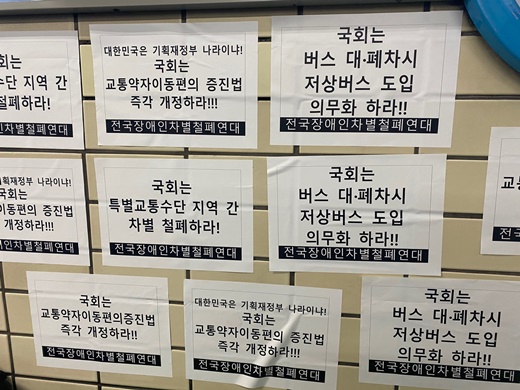 는
수단 지역 간
철폐하라!
애인차별철폐연대
대한민국은 기획재정부 나라이냐!
국회는
교통약자이동편의 증진법
즉각 개정하라!!!
전국장애인차별철폐연대
국회는
버스 대·폐차시
저상버스 도입
의무화 하라!!
전국장애인차별철폐연대
기획재정부 나라이냐!
국회는
이동편의 증진법
개정하라!!!
애인차별철폐연대
국회는
특별교통수단 지역 간
차별 철폐하라!
전국장애인차별철폐연대
국회는
버스 대·폐차시
저상버스 도입
의무화 하라!!
전국장애인차별철폐연대
교통
전국
국회는
교통약자이동편의증진법
즉각 개정하라!!
전국장애인차별철폐연대
대한민국은 기획재정부 나라이냐!
국회는
교통약자이동편의 증진법
즉각 개정하라!!!
전국장애인차별철폐연대
국회는
버스 대·폐차시
저상버스 도입
의무화 하라!!
전국장애인차별철폐연대